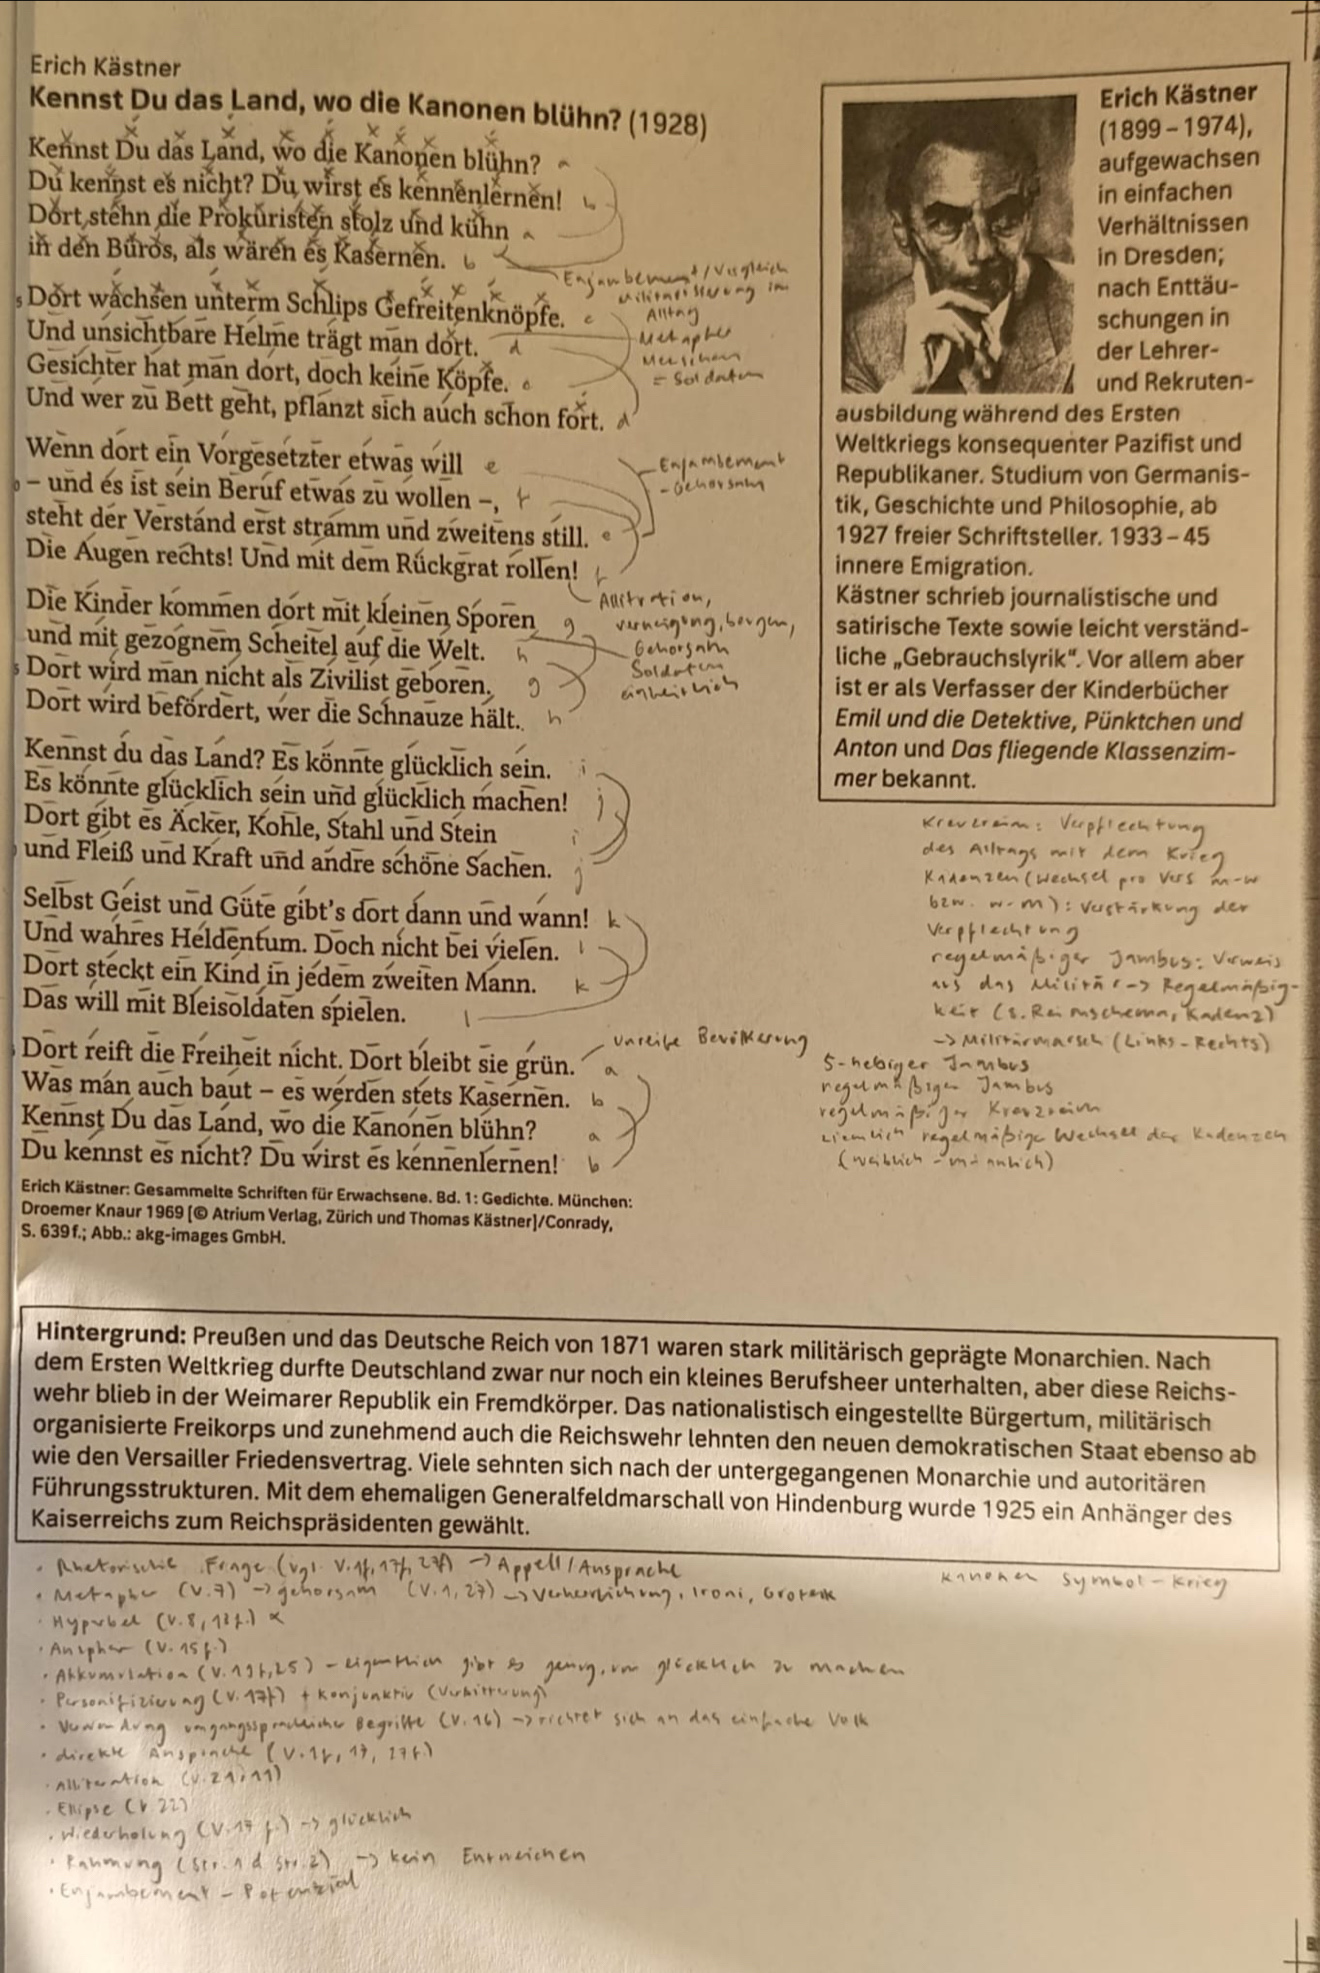 Erich Kästner
Kennst Du das Land, wo die Kanonen blühn? (1928)
Kennst Du das Land, wo die Kanonen blühn? a
Du kennst es nicht? Du wirst es kennenlernen! b
Dort stehn die Prokuristen stolz und kühn a
in den Büros, als wären es Kasernen. b
Enjambement/Vergleich
Militarisierung im
Alltag
5 Dort wachsen unterm Schlips Gefreitenknöpfe. c
Und unsichtbare Helme trägt man dort. d
Gesichter hat man dort, doch keine Köpfe. c
Und wer zu Bett geht, pflanzt sich auch schon fort. d
Metapher
Menschen
= Soldaten
Wenn dort ein Vorgesetzter etwas will e
– und es ist sein Beruf etwas zu wollen –, f
steht der Verstand erst stramm und zweitens still. e
Die Augen rechts! Und mit dem Rückgrat rollen! f
Enjambement
- Gehorsam
Die Kinder kommen dort mit kleinen Sporen g
und mit gezognem Scheitel auf die Welt. h
Dort wird man nicht als Zivilist geboren. g
Dort wird befördert, wer die Schnauze hält. h
Allitration,
verneigung, beugen,
Gehorsam
Soldaten
einheitlich
Kennst du das Land? Es könnte glücklich sein. i
Es könnte glücklich sein und glücklich machen! j
Dort gibt es Äcker, Kohle, Stahl und Stein i
und Fleiß und Kraft und andre schöne Sachen. j
Selbst Geist und Güte gibt's dort dann und wann! k
Und wahres Heldentum. Doch nicht bei vielen. l
Dort steckt ein Kind in jedem zweiten Mann. k
Das will mit Bleisoldaten spielen. l
Dort reift die Freiheit nicht. Dort bleibt sie grün. a
Was man auch baut – es werden stets Kasernen. b
Kennst Du das Land, wo die Kanonen blühn? a
Du kennst es nicht? Du wirst es kennenlernen! b
unreife Bevölkerung
Erich Kästner: Gesammelte Schriften für Erwachsene. Bd. 1: Gedichte. München:
Droemer Knaur 1969 [© Atrium Verlag, Zürich und Thomas Kästner]/Conrady,
S. 639 f.; Abb.: akg-images GmbH.
Erich Kästner
(1899 – 1974),
aufgewachsen
in einfachen
Verhältnissen
in Dresden;
nach Enttäu-
schungen in
der Lehrer-
und Rekruten-
ausbildung während des Ersten
Weltkriegs konsequenter Pazifist und
Republikaner. Studium von Germanis-
tik, Geschichte und Philosophie, ab
1927 freier Schriftsteller. 1933 – 45
innere Emigration.
Kästner schrieb journalistische und
satirische Texte sowie leicht verständ-
liche „Gebrauchslyrik“. Vor allem aber
ist er als Verfasser der Kinderbücher
Emil und die Detektive, Pünktchen und
Anton und Das fliegende Klassenzim-
mer bekannt.
Kreuzreim: Verpflechtung
des Alltags mit dem Krieg
Kadenzen (Wechsel pro Vers m-w
bzw. w-m): Verstärkung der
Verpflechtung
regelmäßiger Jambus: Verweis
aus das Militär -> Regelmäßig-
keit (s. Reimschema, Kadenz)
-> Militärmarsch (Links-Rechts)
5-hebiger Jambus
regelmäßiger Jambus
regelmäßiger Kreuzreim
ziemlich regelmäßige Wechsel der Kadenzen
(weiblich - männlich)
Hintergrund: Preußen und das Deutsche Reich von 1871 waren stark militärisch geprägte Monarchien. Nach
dem Ersten Weltkrieg durfte Deutschland zwar nur noch ein kleines Berufsheer unterhalten, aber diese Reichs-
wehr blieb in der Weimarer Republik ein Fremdkörper. Das nationalistisch eingestellte Bürgertum, militärisch
organisierte Freikorps und zunehmend auch die Reichswehr lehnten den neuen demokratischen Staat ebenso ab
wie den Versailler Friedensvertrag. Viele sehnten sich nach der untergegangenen Monarchie und autoritären
Führungsstrukturen. Mit dem ehemaligen Generalfeldmarschall von Hindenburg wurde 1925 ein Anhänger des
Kaiserreichs zum Reichspräsidenten gewählt.
• Rhetorische Frage (vgl. V. 1f, 17f, 27f) -> Appell/Ansprache
• Metapher (V. 7) -> gehorsam (V. 1, 27) -> Verherrlichung, Ironi, Grotesk
Kanonen Symbol - Krieg
• Hyperbel (V. 8, 13f.)
• Anapher (V. 15f.)
• Akkumulation (V. 19f, 25) - eigentlich gibt es genug, um glücklich zu machen
• Personifizierung (V. 17f) + Konjunktiv (Verbitterung)
• Verwendung umgangssprachlicher Begriffe (V. 16) -> richtet sich an das einfache Volk
• direkte Ansprache (V. 1f, 17, 27f.)
• Alliteration (V. 21, 11)
• Ellipse (V. 22)
• Wiederholung (V. 17 f.) -> glücklich
• Rahmung (Str. 1 & Str. 7) -> kein Entweichen
• Enjambement - Potenzial